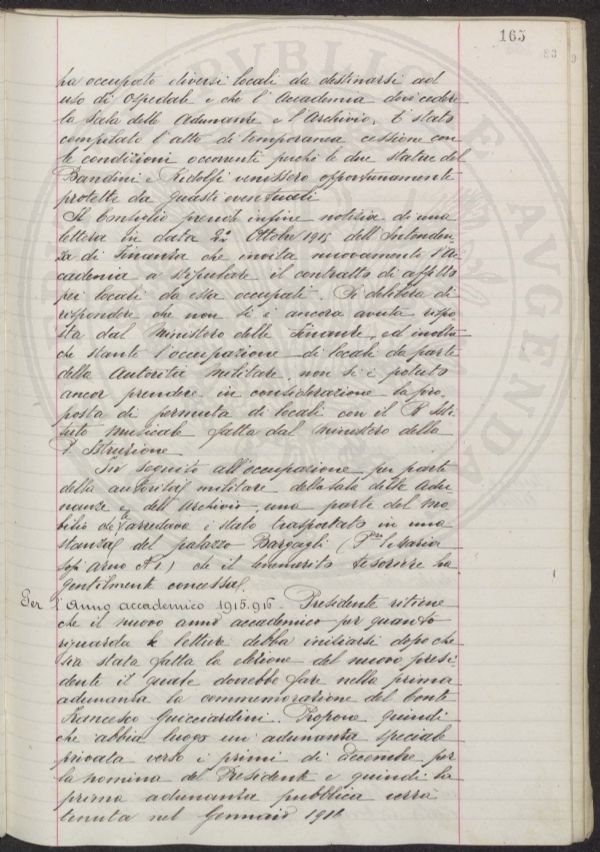 165
83
9
ha occupato diversi locali da destinarsi ad
uso di Ospedale e che l'Accademia deve cedere
la Sala delle Adunanze e l'Archivio. È stato
compilato l'atto di temporanea cessione con
le condizioni occorrenti perchè le due statue del
Bandini e Ridolfi venissero opportunamente
protette da guasti eventuali
Il Consiglio prende infine notizia di una
lettera in data 22 Ottobre 1915 dell'Intenden-
za di Finanza che invita nuovamente l'Ac
cademia a stipulare il contratto di affitto
pei locali da essa occupati. Si delibera di
rispondere che non si è ancora avuta rispo-
sta dal Ministero delle Finanze, ed inoltre
che stante l'occupazione di locali da parte
della Autorità militare, non si è potuto
ancor prendere in considerazione la pro-
posta di permuta di locali con il R. Isti
tuto Musicale fatta dal Ministero della
P. Istruzione
In seguito all'occupazione per parte
della autorità militare della Sala delle Adu-
nanze e dell'Archivio, una parte del mo-
bilio di arredavo è stato trasportato in una
stanza del palazzo Bargagli (
sop'arno N 1) che il emerito tesoriere ha
gentilmente concessa.
Per l'Anno accademico 1915-916 - Presidente ritiene
che il nuovo anno accademico per quanto
riguarda le letture debba iniziarsi dopo che
sia stata fatta la elezione del nuovo presi
dente il quale dovrebbe fare nella prima
adunanza la commemorazione del Conte
Francesco Guicciardini. Propone quindi
che abbia luogo un'adunanza speciale
privata verso i primi di Decembre per
la nomina del Presidente e quindi la
prima adunanza pubblica verrà
tenuta nel Gennaio 1916